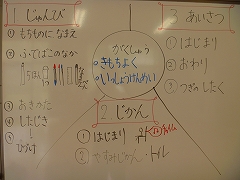 1 じゅんび
① もちものに なまえ
② ふでばこのなか
③ あきのた
④ したじき
⑤ ひづけ
がくしゅう
きもちよく
いっしょうけんめい
3 あいさつ
① はじまり
② おわり
③ つぎのしたく
2 じかん
① はじまり
② やすみじかん トイレ